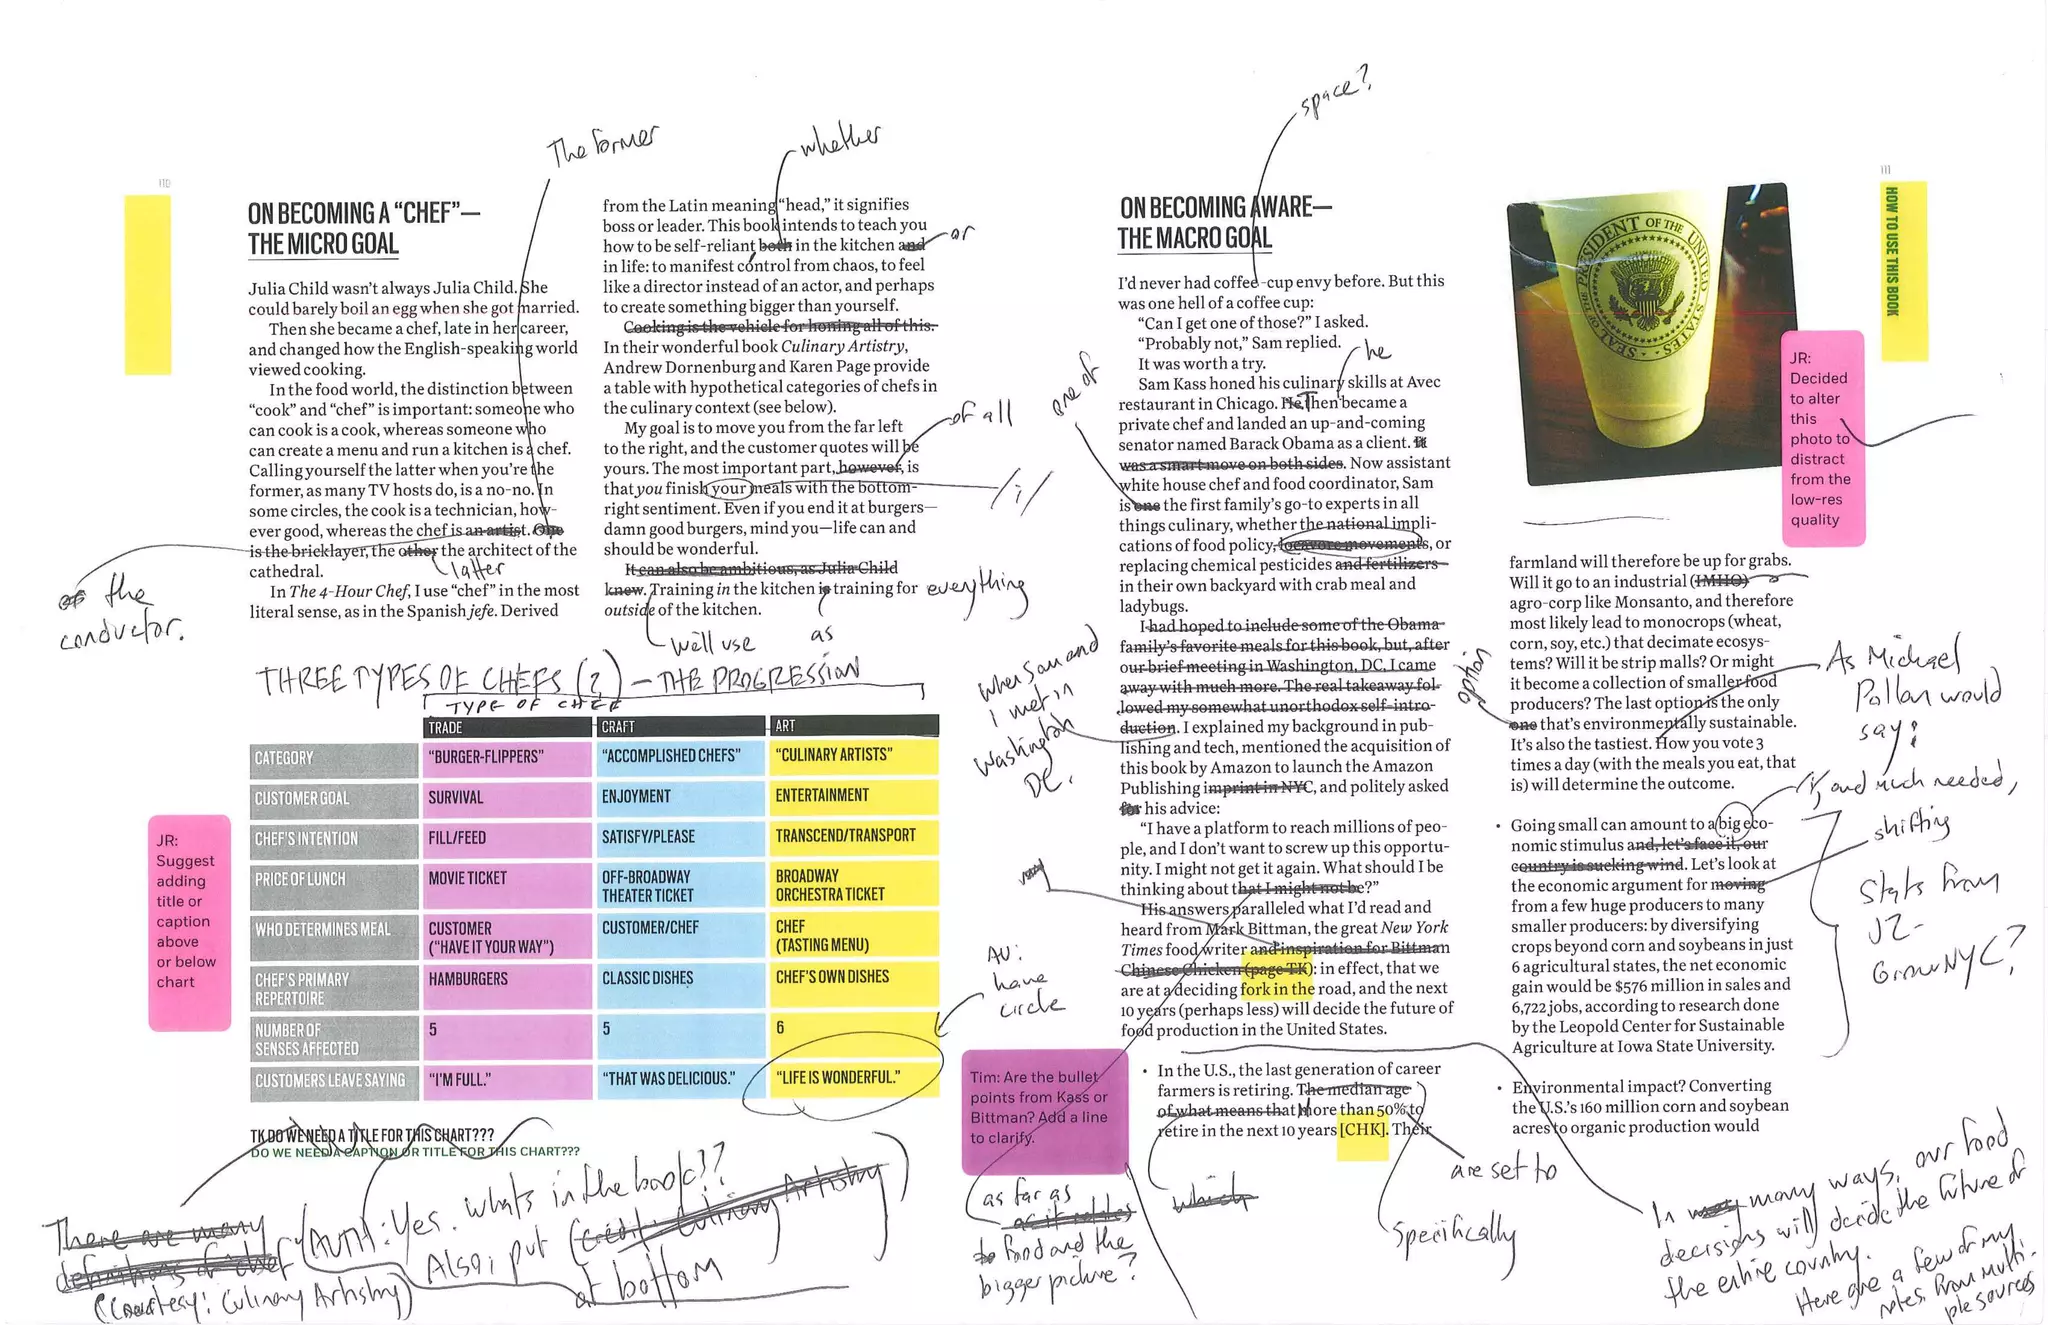 110
ON BECOMING A “CHEF”—
THE MICRO GOAL
Julia Child wasn’t always Julia Child. She
could barely boil an egg when she got married.
Then she became a chef, late in her career,
and changed how the English-speaking world
viewed cooking.
In the food world, the distinction between
“cook” and “chef” is important: someone who
can cook is a cook, whereas someone who
can create a menu and run a kitchen is a chef.
Calling yourself the latter when you’re the
former, as many TV hosts do, is a no-no. In
some circles, the cook is a technician, how-
ever good, whereas the chef is an artist. One
is the bricklayer, the other the architect of the
cathedral.
In The 4-Hour Chef, I use “chef” in the most
literal sense, as in the Spanish jefe. Derived
The former
latter
the
conductor.
from the Latin meaning “head,” it signifies
boss or leader. This book intends to teach you
how to be self-reliant both in the kitchen and
in life: to manifest control from chaos, to feel
like a director instead of an actor, and perhaps
to create something bigger than yourself.
Cooking is the vehicle for honing all of this.
In their wonderful book Culinary Artistry,
Andrew Dornenburg and Karen Page provide
a table with hypothetical categories of chefs in
the culinary context (see below).
My goal is to move you from the far left
to the right, and the customer quotes will be
yours. The most important part, however, is
that you finish your meals with the bottom-
right sentiment. Even if you end it at burgers—
damn good burgers, mind you—life can and
should be wonderful.
It can also be ambitious, as Julia Child
knew. Training in the kitchen is training for
outside of the kitchen.
whether
or
of all
/i/
everything
We'll use
as
THREE TYPES OF CHEFS (?) — THE PROGRESSION
TYPE OF CHEF
TRADE CRAFT ART
CATEGORY “BURGER-FLIPPERS” “ACCOMPLISHED CHEFS” “CULINARY ARTISTS”
CUSTOMER GOAL SURVIVAL ENJOYMENT ENTERTAINMENT
CHEF’S INTENTION FILL/FEED SATISFY/PLEASE TRANSCEND/TRANSPORT
PRICE OF LUNCH MOVIE TICKET OFF-BROADWAY BROADWAY
THEATER TICKET ORCHESTRA TICKET
WHO DETERMINES MEAL CUSTOMER CUSTOMER/CHEF CHEF
(“HAVE IT YOUR WAY”) (TASTING MENU)
CHEF’S PRIMARY HAMBURGERS CLASSIC DISHES CHEF’S OWN DISHES
REPERTOIRE
NUMBER OF 5 5 6
SENSES AFFECTED
CUSTOMERS LEAVE SAYING “I’M FULL.” “THAT WAS DELICIOUS.” “LIFE IS WONDERFUL.”
JR:
Suggest
adding
title or
caption
above
or below
chart
TK DO WE NEED A TITLE FOR THIS CHART???
DO WE NEED A CAPTION OR TITLE FOR THIS CHART???
There are many
definitions of chef
(Courtesy: Culinary Artistry)
AUTH: Yes. What's in the book??
Also, put (Credit: Culinary Artistry)
at bottom
AU:
have
circle
111
HOW TO USE THIS BOOK
ON BECOMING AWARE—
THE MACRO GOAL
I’d never had coffee-cup envy before. But this
was one hell of a coffee cup:
“Can I get one of those?” I asked.
“Probably not,” Sam replied.
It was worth a try.
Sam Kass honed his culinary skills at Avec
restaurant in Chicago. He Then became a
private chef and landed an up-and-coming
senator named Barack Obama as a client. It
was a smart move on both sides. Now assistant
white house chef and food coordinator, Sam
is one the first family’s go-to experts in all
things culinary, whether the national impli-
cations of food policy, locavore movements, or
replacing chemical pesticides and fertilizers
in their own backyard with crab meal and
ladybugs.
I had hoped to include some of the Obama
family’s favorite meals for this book, but, after
our brief meeting in Washington, DC, I came
away with much more. The real takeaway fol-
lowed my somewhat unorthodox self-intro-
duction. I explained my background in pub-
lishing and tech, mentioned the acquisition of
this book by Amazon to launch the Amazon
Publishing imprint in NYC, and politely asked
for his advice:
“I have a platform to reach millions of peo-
ple, and I don’t want to screw up this opportu-
nity. I might not get it again. What should I be
thinking about that I might not be?”
His answers paralleled what I’d read and
heard from Mark Bittman, the great New York
Times food writer and inspiration for Bittman
Chinese Chicken (page TK): in effect, that we
are at a deciding fork in the road, and the next
10 years (perhaps less) will decide the future of
food production in the United States.
• In the U.S., the last generation of career
farmers is retiring. The median age
of what means that More than 50% to
retire in the next 10 years [CHK]. Their
space?
he
one of
When Sam and
I met in
Washington
DC.
Tim: Are the bullet
points from Kass or
Bittman? Add a line
to clarify.
as far as
as it relates
to food and the
bigger picture?
which
are set to
Specifically
PRESIDENT OF THE UNITED STATES
SEAL OF THE
JR:
Decided
to alter
this
photo to
distract
from the
low-res
quality
farmland will therefore be up for grabs.
Will it go to an industrial (IMHO)
agro-corp like Monsanto, and therefore
most likely lead to monocrops (wheat,
corn, soy, etc.) that decimate ecosys-
tems? Will it be strip malls? Or might
it become a collection of smaller food
producers? The last option is the only
one that’s environmentally sustainable.
It’s also the tastiest. How you vote 3
times a day (with the meals you eat, that
is) will determine the outcome.
• Going small can amount to a big eco-
nomic stimulus and, let’s face it, our
country is sucking wind. Let’s look at
the economic argument for moving
from a few huge producers to many
smaller producers: by diversifying
crops beyond corn and soybeans in just
6 agricultural states, the net economic
gain would be $576 million in sales and
6,722 jobs, according to research done
by the Leopold Center for Sustainable
Agriculture at Iowa State University.
• Environmental impact? Converting
the U.S.’s 160 million corn and soybean
acres to organic production would
option
As Michael
Pollan would
say:
, and much needed,
shifting
Stats from
JZ-
GrowNYC?
In many ways, our food
decisions will decide the future of
the entire country.
Here are a few of my
notes from multi-
ple sources